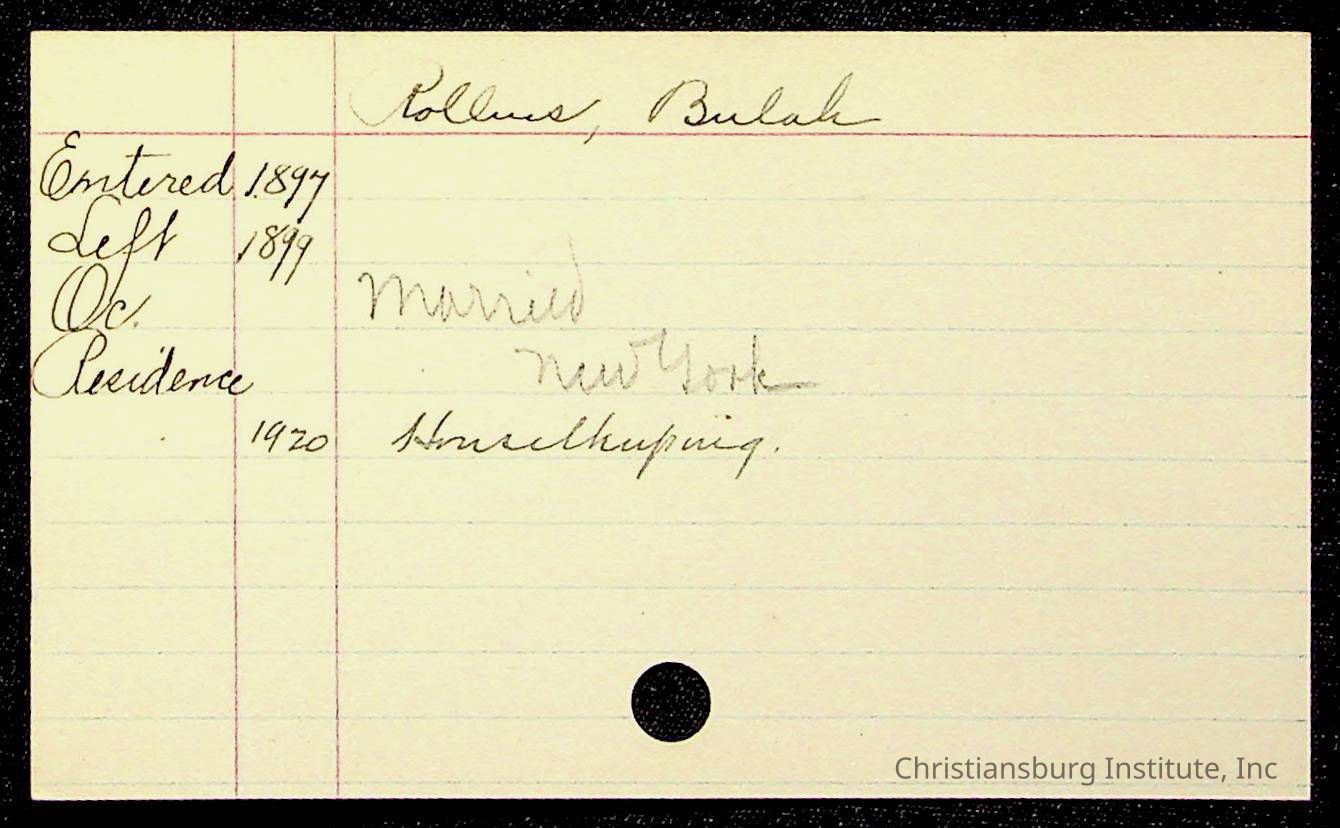 Rollins, Bulah
Entered 1897
Left 1899
Oc. Married
Residence New York
1920 Housekeeping.
Christiansburg Institute, Inc